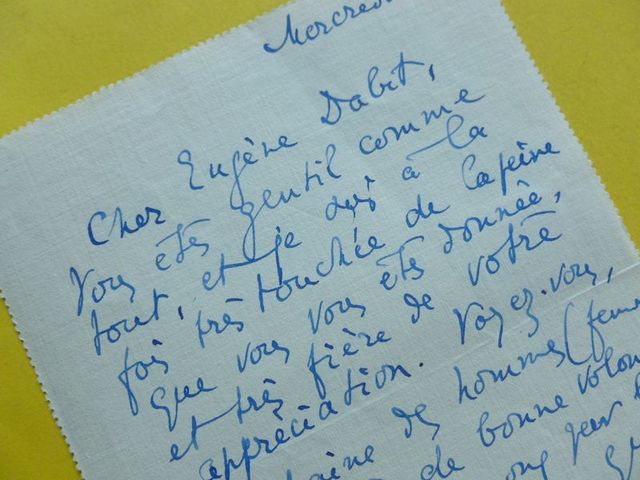 Mercred
Cher Eugène Dabit,
Vous êtes gentil comme
tout, et je suis à la
fois très touchée de la peine
que vous vous êtes donnée,
et très fière de votre
appréciation. Voyez-vous,
aine des hommes (femm
de bonne volon